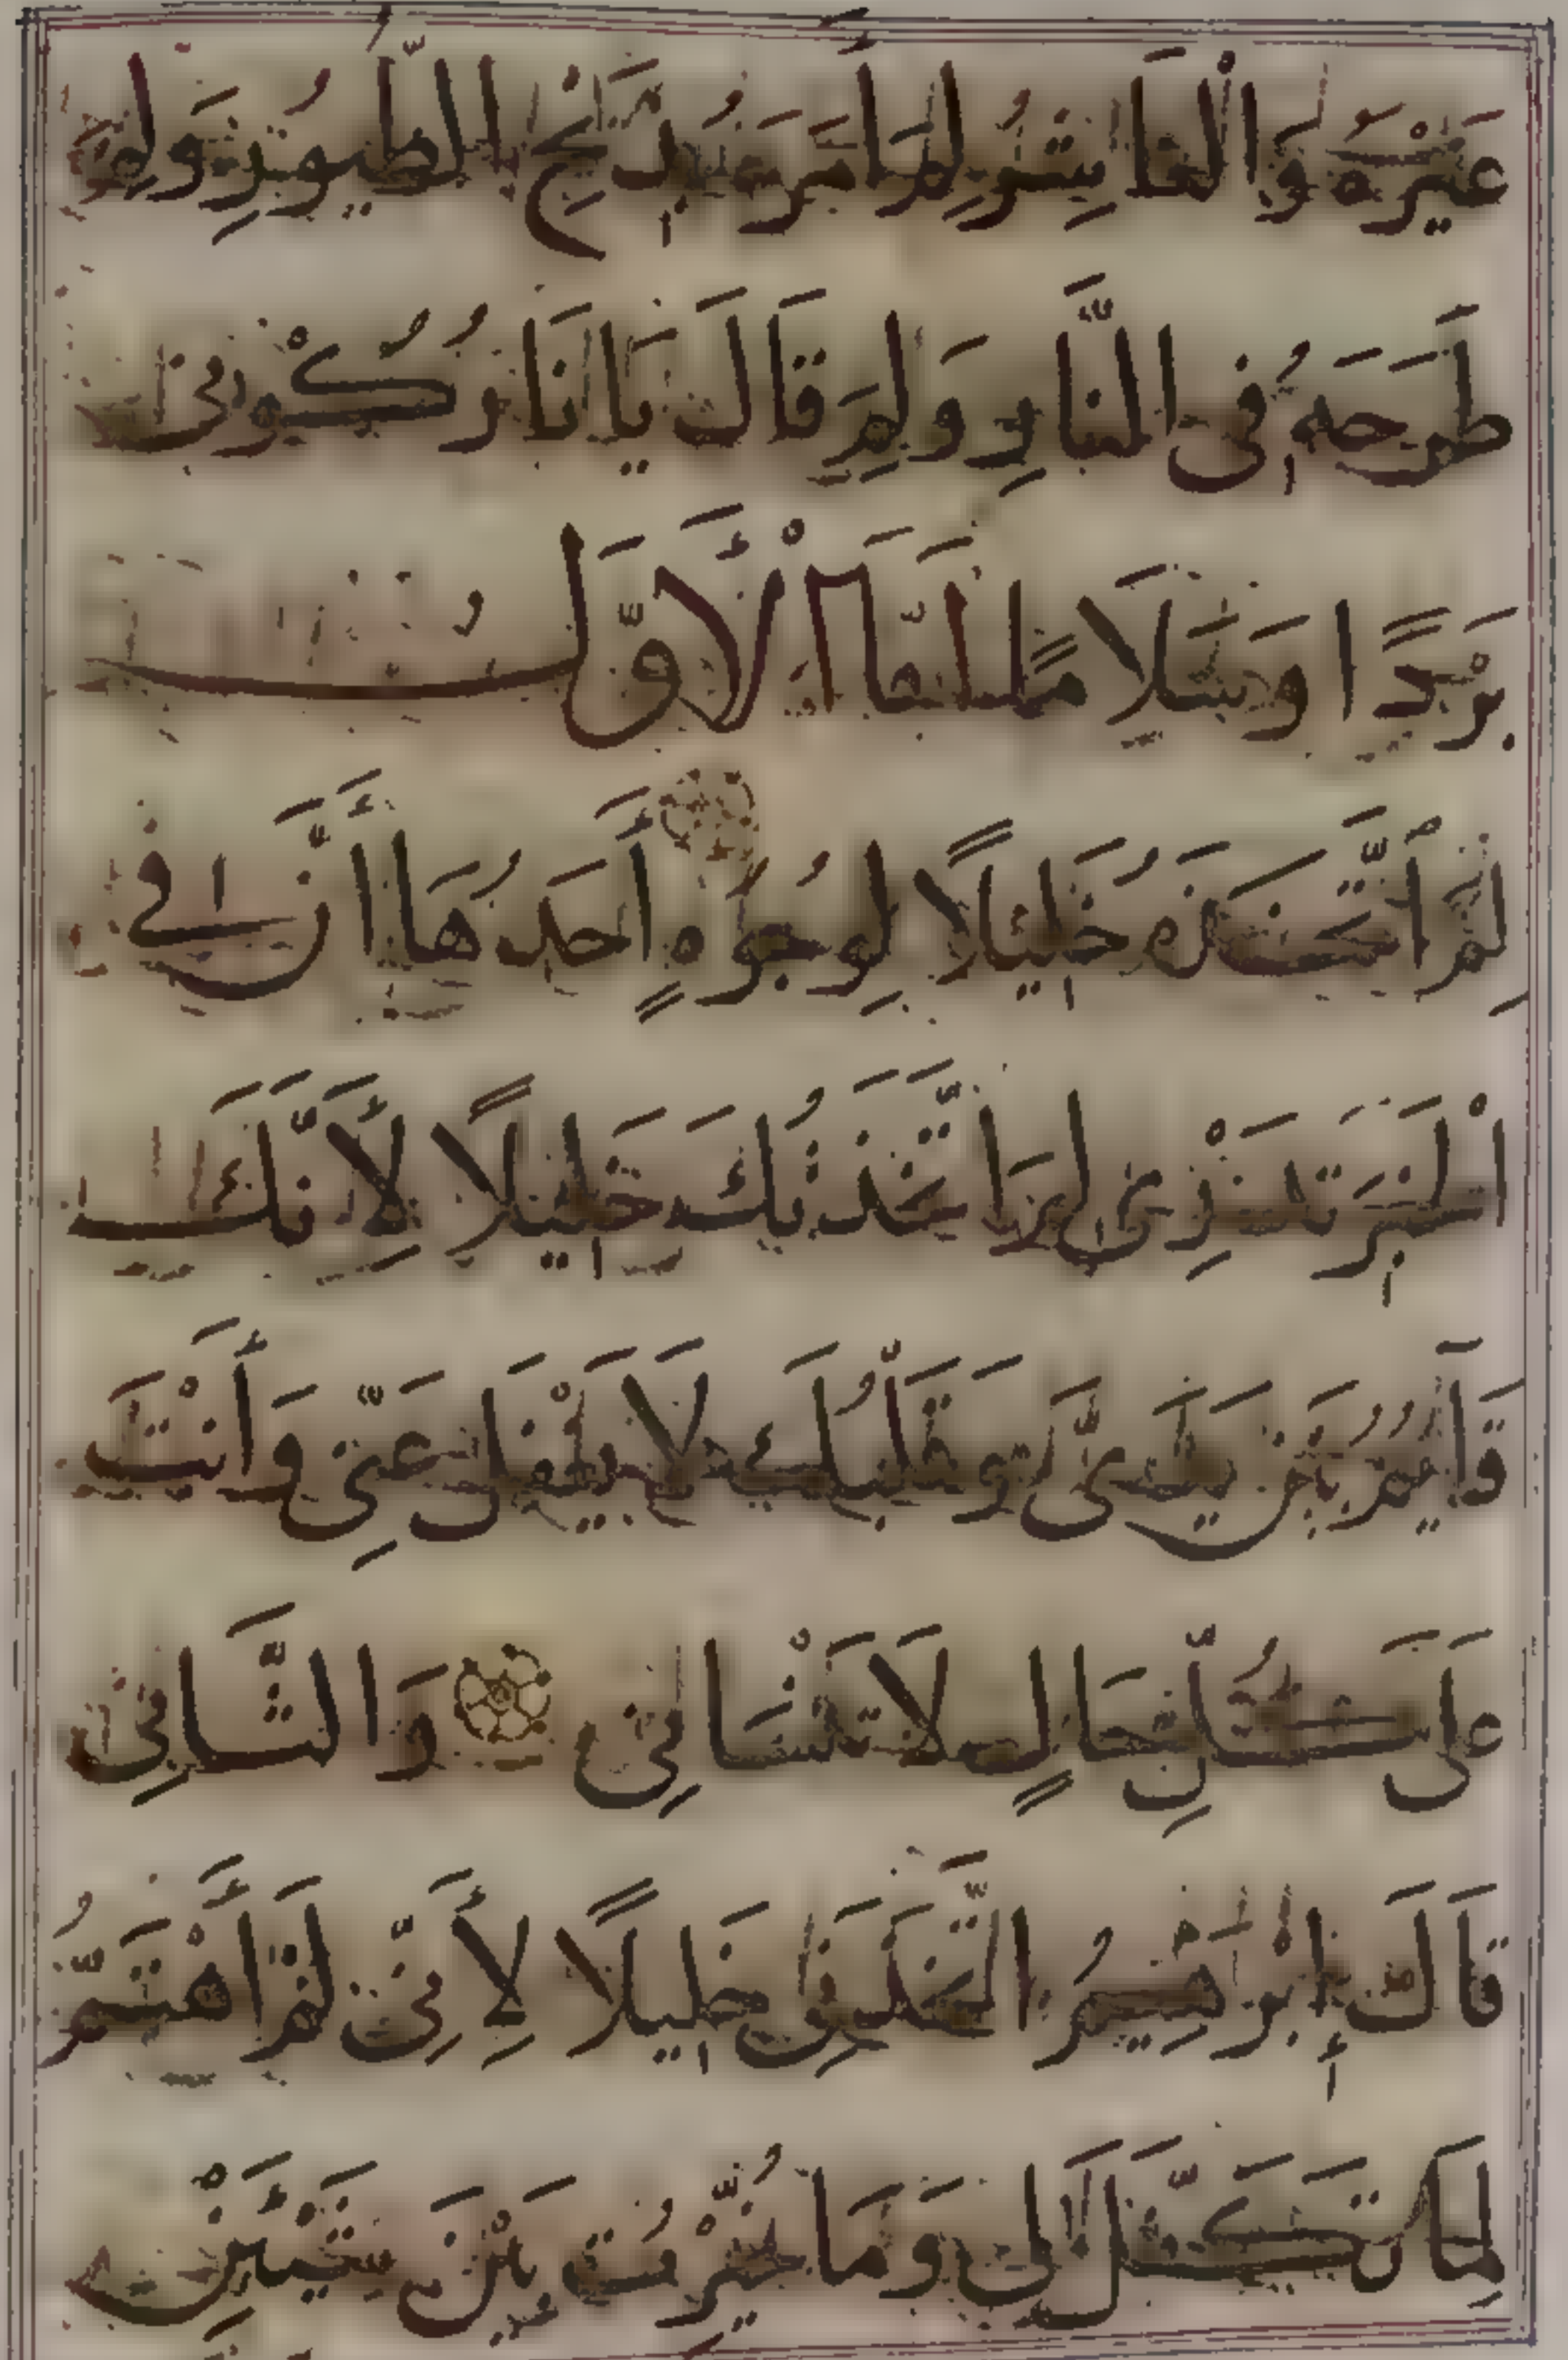 غَيْرَهُ وَالْعَاشِرُ لِمَ أَمَرَهُ بِذَبْحِ الطُّيُورِ وَلِمَ
طَرَحَهُ فِي النَّارِ وَلِمَ قَالَ يَا نَارُ كُوْنِي
بَرْدًا وَسَلَامًا أَمَّا الْأَوَّلُ
لِمَ اتَّخَذَهُ خَلِيْلًا لِوُجُوهٍ أَحَدُهَا أَنَّ فِي
الْخَبَرِ تَدْرِي لِمَ اتَّخَذْتُكَ خَلِيْلًا لِأَنَّكَ
قَآئِمٌ بَيْنَ يَدَيَّ وَقَلْبُكَ لَا يَغْفَلُ عَنِّي وَأَنْتَ
عَلَى كُلِّ حَالٍ لَا تَنْسَانِي وَالثَّانِي
قَالَ إِبْرٰهِيمُ اتَّخَذَنِي خَلِيلًا لِأَنِّي لَمْ أَهْتَمَّ
لِمَا تَكَفَّلَ لِي وَمَا خُيِّرْتُ بَيْنَ شَيْئَيْنِ